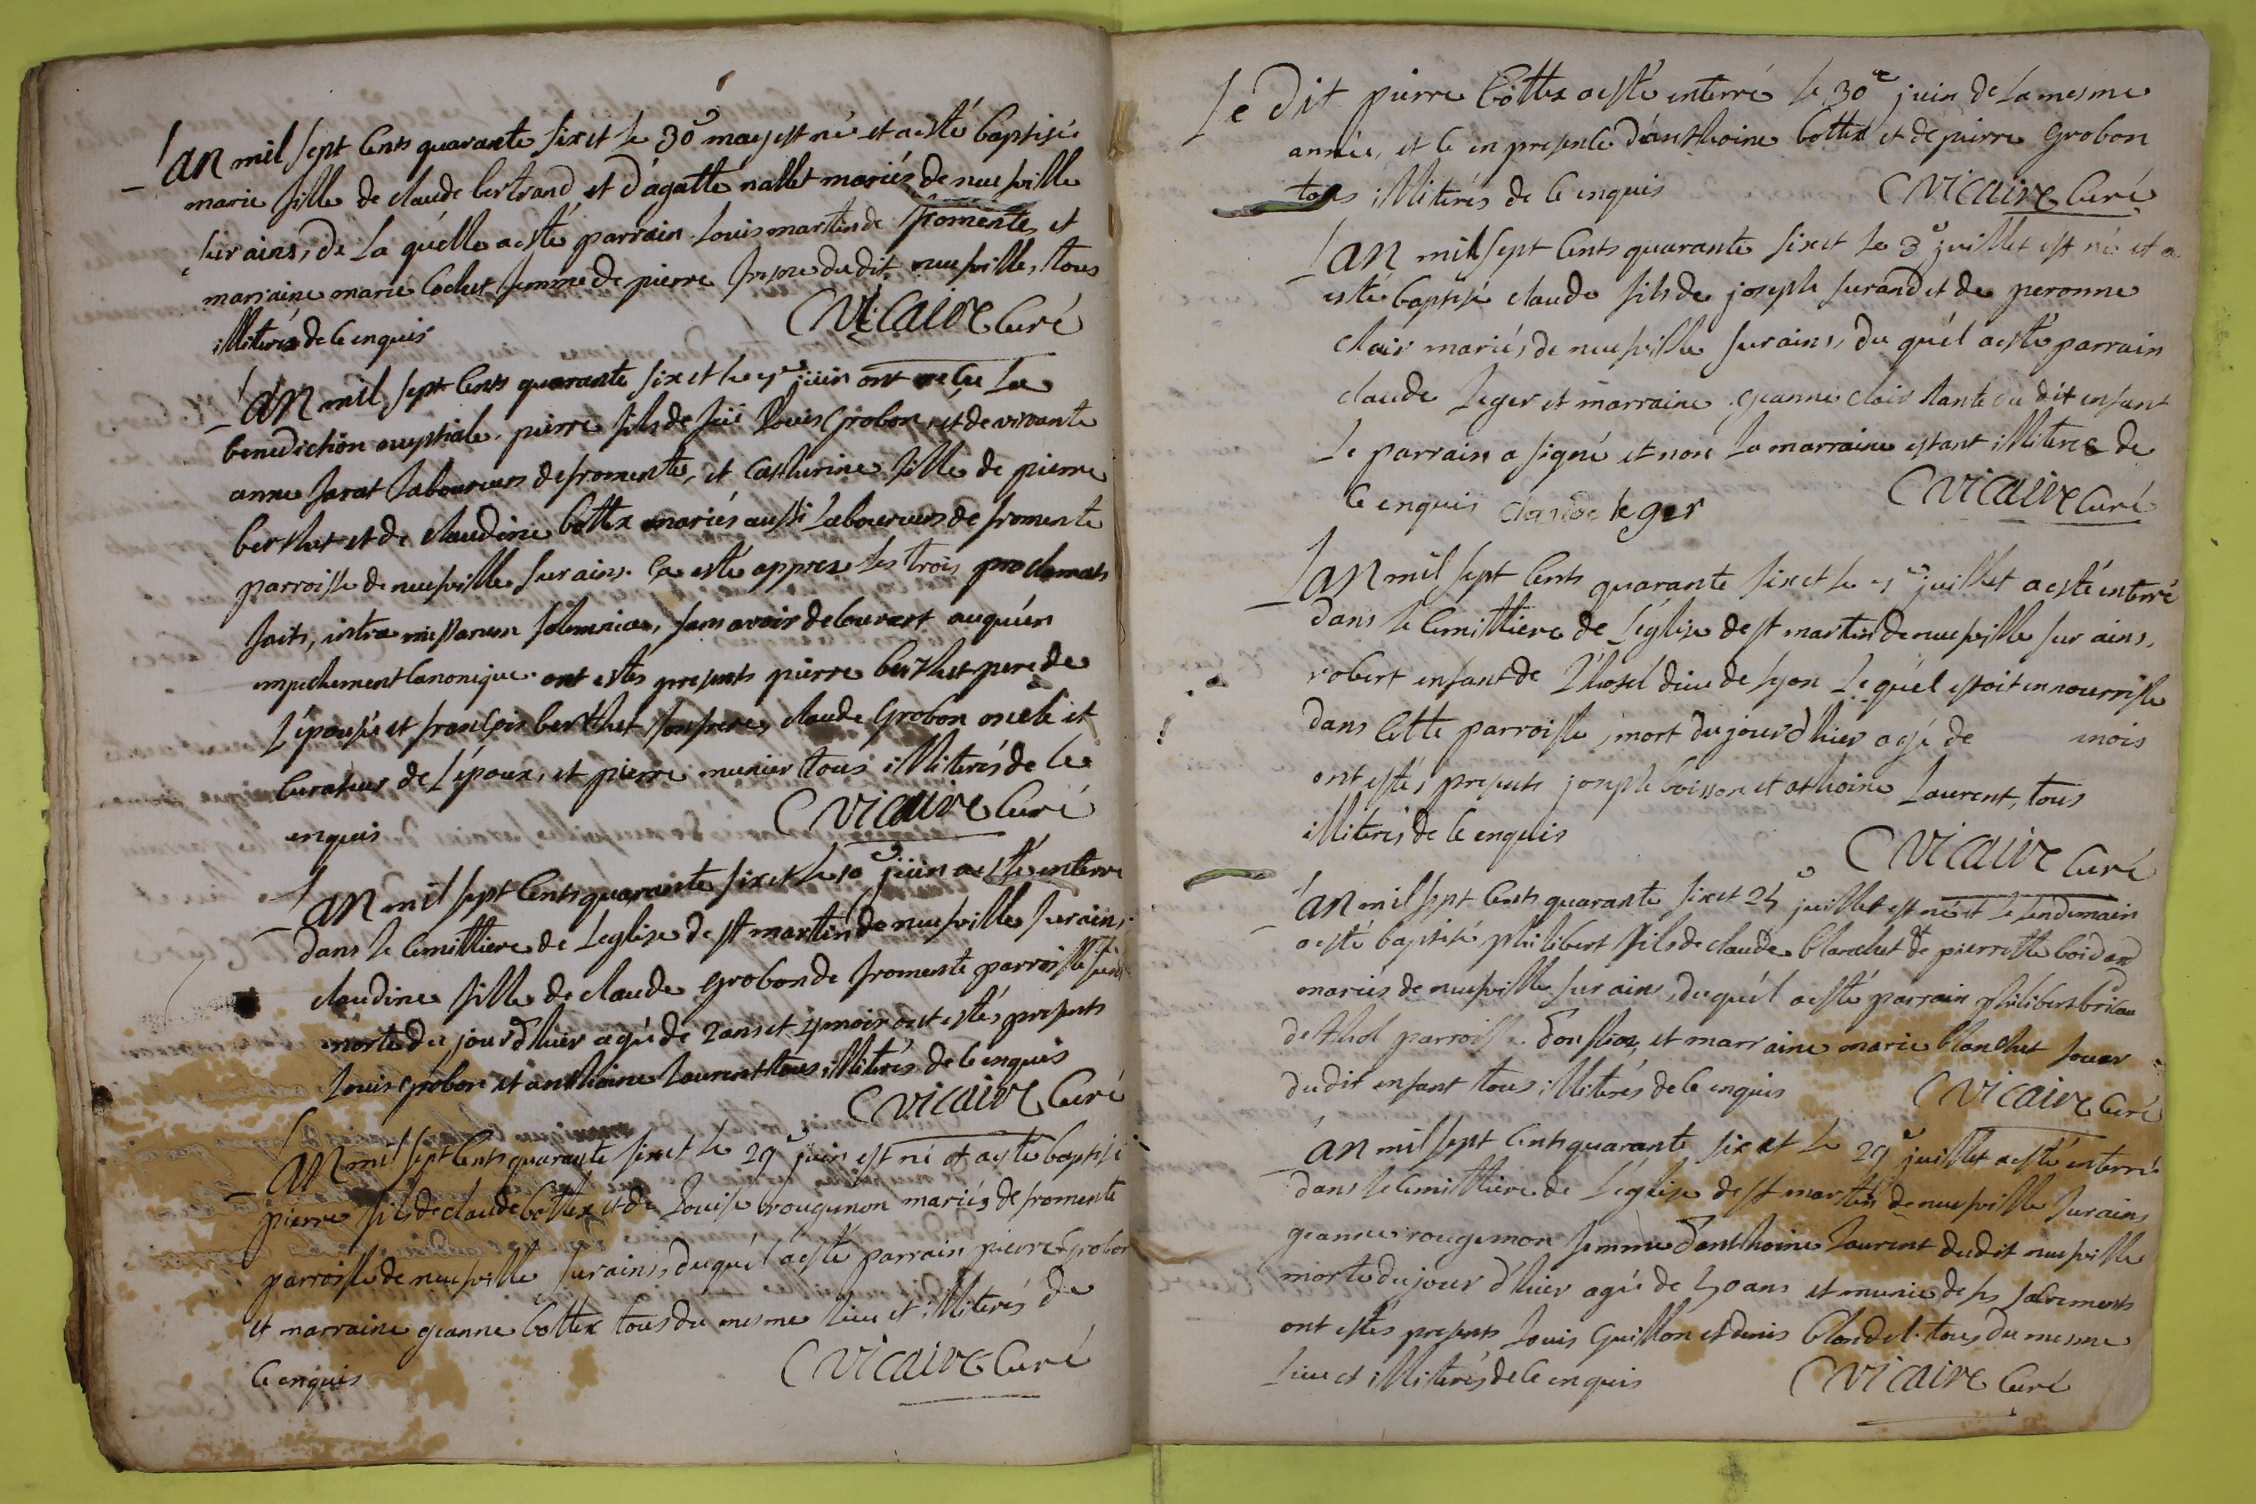 Lan mil sept cents quarante six et le 30e may est né et a esté baptisé
marie fille de claude bertrand et d'agatte nallet mariés de neufville
sur ains, de la quélle a esté parrain Louis martin de fromente, et
marraine marie cochet femme de pierre dudit neufville, tous
illiterés de ce enquis Vicaire Curé
Lan mil sept cents quarante six et le 7e juin ont reçu la
benediction nuptiale pierre fils de fut Louis Grobon, et de vivante
anne laboureurs de fromente, et Catherine fille de pierre
berthet et de claudine bottex mariés aussi laboureurs de fromente
parroisse de neufville sur ains. ça esté appres les trois proclamats
faits, intra missarum solemnia, sans avoir decouvert auquún
empechement Canonique. ont estes presents pierre berthet pere de
L'épouse et françois berthet son frere, claude Grobon oncle et
Curateur de L'époux, et pierre munier tous illiterés de ce
enquis Vicaire Curé
Lan mil sept cents quarante six et le 10e juin a esté enterré
dans le cimittiere de Leglise de st martin de neufville sur ains.
claudine fille de claude Grobon de fromente parroisse susd
morte du jour d'hier agé de 2 ans et 4 mois ont estés presents
Louis Grobon et anthoine Laurent tous illiterés de ce enquis
Vicaire Curé
Lan mil sept cents quarante six et le 29e juin est né et a esté baptisé
pierre fils de claude bottex et de Louise rougemon mariés de fromente
parroisse de neufville sur ains, duquél a esté parrain pierre Grobon
et marraine jeanne bottex tous du mesme lieu et illiterés de
ce enquis Vicaire Curé
Le dit pierre bottex a esté enterré le 30e juin de la mesme
année, et ce en presence d'anthoine bottex et de pierre Grobon
tous illiterés de ce enquis Vicaire Curé
Lan mil sept cents quarante six et le 3e juillet est né et a
esté baptisé claude fils de joseph furand et de peronne
clair mariés de neufville sur ains, du quél a esté parrain
claude Leger et marraine jeanne clair tante du dit enfant
Le parrain a signé et non La marraine estant illiteree de
ce enquis claude leger Vicaire Curé
Lan mil sept cents quarante six et le 7e juillet a esté enterré
dans le cimittiere de L'église de st martin de neufville sur ains,
robert enfant de L'hotel dieu de Lyon Lequél estoit en nourrisse
dans cette parroisse, mort du jour d'hier agé de mois
ont estés presents joseph boisson et athoine Laurent, tous
illiterés de ce enquis Vicaire Curé
Lan mil sept cents quarante six et 24e juillet est né et le lendemain
a esté baptisé philibert fils de claude blanchet et de pierrette boidard
mariés de neufville sur ains, duquél a esté parrain philibert
de thol parroisse et marraine marie blanchet soeur
dudit enfant tous illiterés de ce enquis Vicaire Curé
Lan mil sept cents quarante six et le 29e juillet a esté enterré
dans le cimittiere de L'église de st martin de neufville sur ains
jeanne rougemon femme d'anthoine Laurent dudit neufville
morte du jour d'hier agé de 50 ans et munie de ss sacrements
ont estés presents Louis Guillon et denis blondel. tous du mesme
lieu et illiterés de ce enquis Vicaire Curé